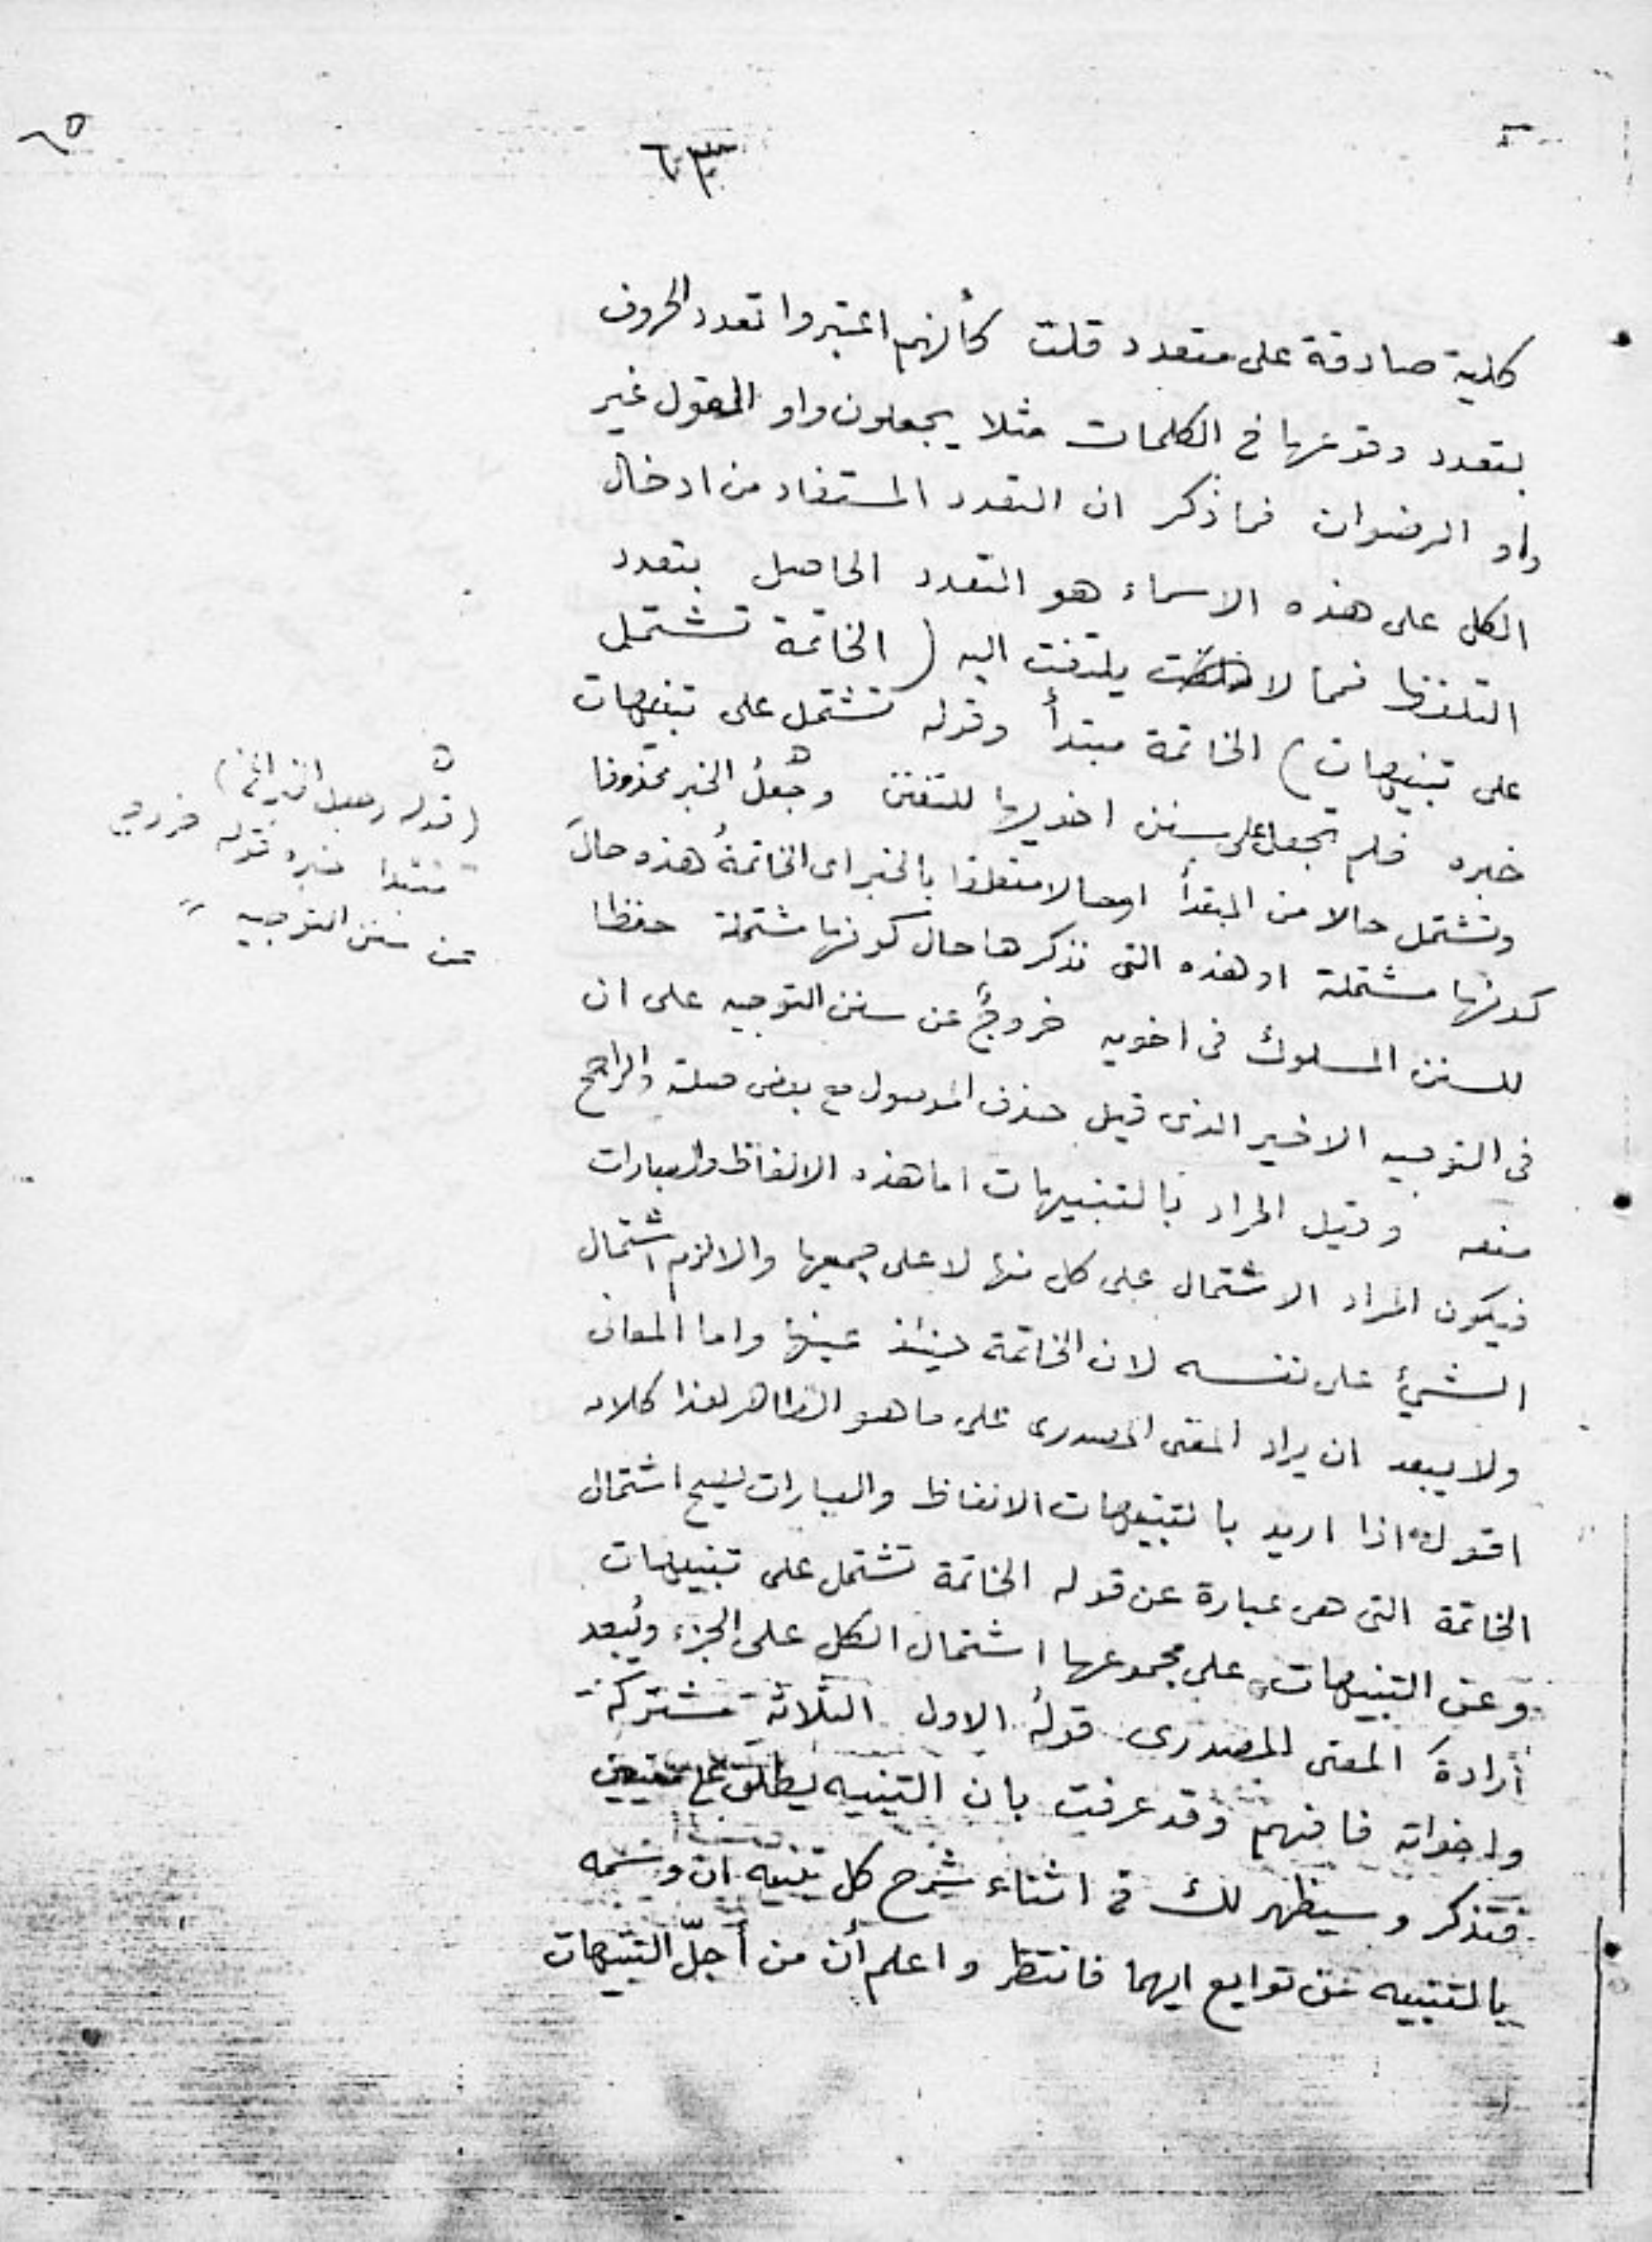 ٦٣
كلية صادقة على متعدد قلت كأنهم اعتبروا تعدد الحروف
بتعدد وقوعها في الكلمات مثلا يجعلون واو المقول غير
واو الرضوان فما ذكر ان التعدد المستفاد من ادخال
الكل على هذه الاسماء هو التعدد الحاصل بتعدد
التلفظ فمما لا يلتفت اليه (الخاتمة تشتمل
على تنبيهات) الخاتمة مبتدأ وقوله تشتمل على تنبيهات
خبره فلم تجعل على سنن اخويها للتفنن وجعلُ الخبر محذوفا
وتشتمل حالا من المبتدأ او حالا متعلقا بالخبر اى الخاتمةُ هذه حالَ
كونها مشتملة او هذه التى نذكرها حال كونها مشتملة حفظا
للسنن المسلوك فى اخويه خروجٌ عن سنن التوجيه على ان
فى التوجيه الاخير الذى قيل حذف الموصول مع بعض صلته والراجح
منعه وقيل المراد بالتنبيهات اما هذه الالفاظ والعبارات
فيكون المراد الاشتمال على كل منها لا على جميعها والا لزم اشتمال
الشيئ على نفسه لان الخاتمة حينئذ عينها واما المعانى
ولا يبعد ان يراد المعنى المصدرى على ما هو الظاهر هذا كلامه
اقول اذا اريد بالتنبيهات الالفاظ والعبارات يصح اشتمال
الخاتمة التى هى عبارة عن قوله الخاتمة تشتمل على تنبيهات
وعن التنبيهات على مجموعها اشتمال الكل على الجزء ويُبعد
أرادةَ المعنى المصدرى قولُه الاول الثلاثة مشتركة
واخواته فافهم وقد عرفت بان التنبيه يطلق على معنيين
فتذكر وسيظهر لك فى اثناء شرح كل تنبيه ان وسمه
بالتنبيه من توابع ايهما فانتظر واعلم أن من أجلّ التنبيهات
(قوله وجعل الخبر الخ)
مبتدا خبره قوله خروج
عن سنن التوجيه